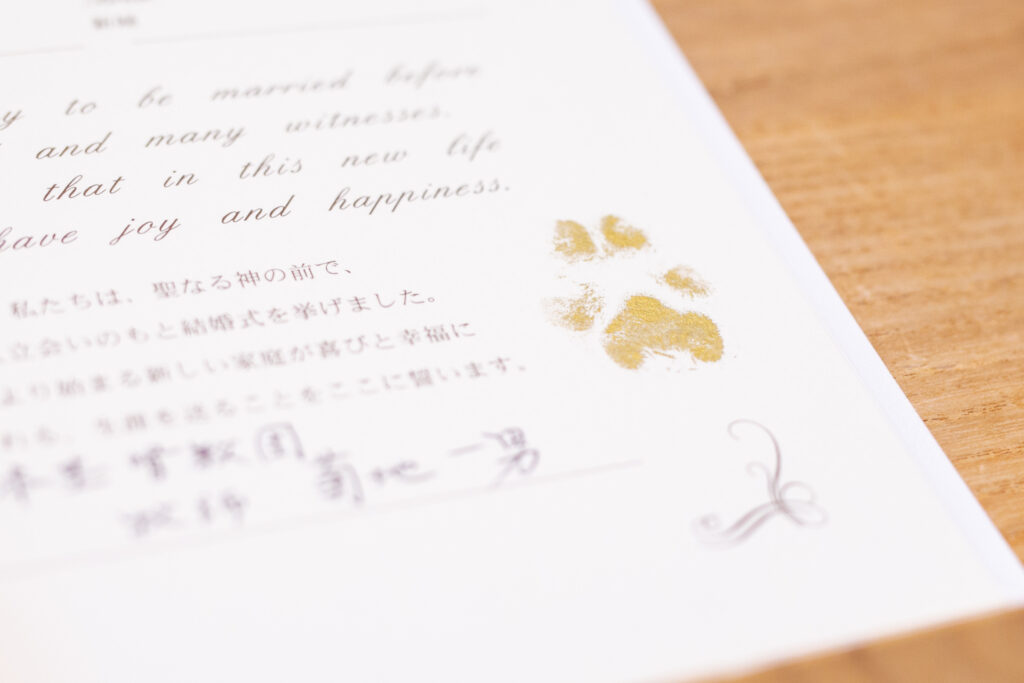 to be married before
and many witnesses.
that in this new life
have joy and happiness.
私たちは、聖なる神の前で、
立会いのもと結婚式を挙げました。
より始まる新しい家庭が喜びと幸福に
れる、生涯を送ることをここに誓います。
菊地 一男